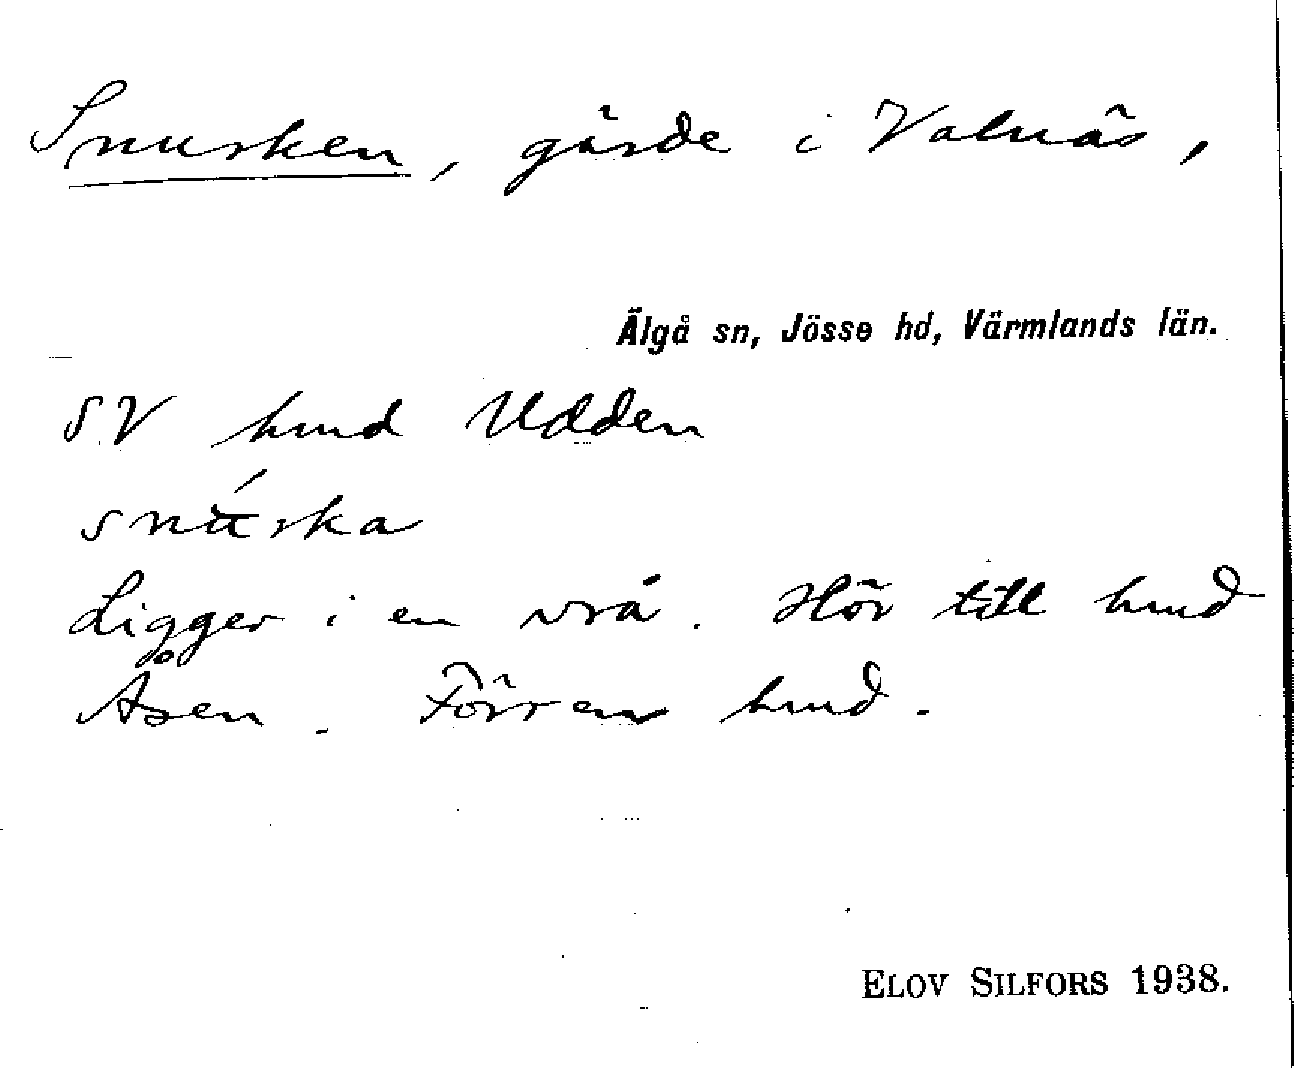 Snusken, gärde i Valnäs,
Älgå sn, Jösse hd, Värmlands län.
SV hmd Udden
snʉ́ska
Ligger i en vrå. Hör till hmd
Åsen. Förr en hmd.
ELOV SILFORS 1938.